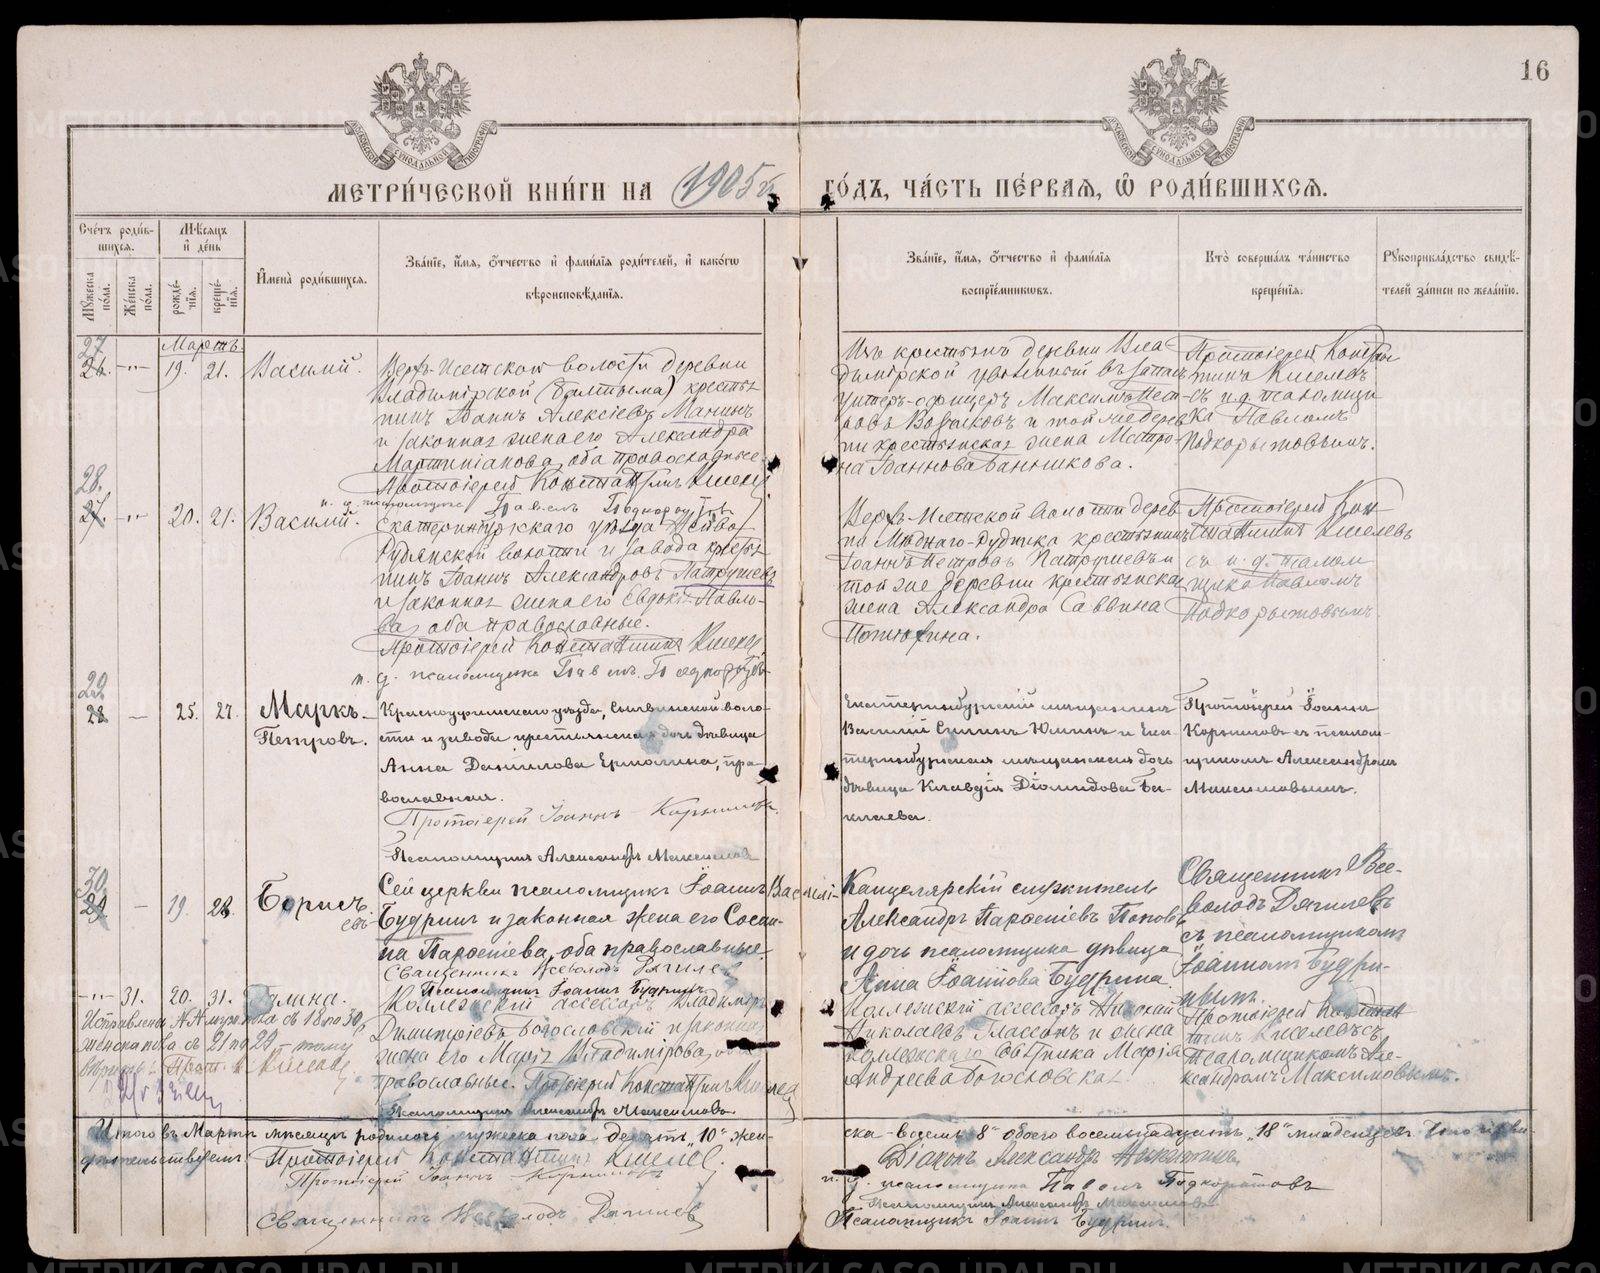 16
МОСКОВСКОЙ СѴНОДАЛЬНОЙ ТИПОГРАФІИ
МОСКОВСКОЙ СѴНОДАЛЬНОЙ ТИПОГРАФІИ
МЕТРИ́ЧЕСКОЙ КНИ́ГИ НА 1905й ГО́ДЪ, ЧА́СТЬ ПЕ́РВАЯ, Ѽ РОДИ́ВШИХСѦ.
Сче́тъ роди́вшихсѧ.
Мꙋ́жеска по́ла.
Же́нска по́ла.
Мѣ́сяцъ и҆ де́нь
рожде́нїѧ.
креще́нїѧ.
И҆мена̀ роди́вшихсѧ.
Зва́нїе, и҆́мѧ, ѻ҆́тчество и҆ фами́лїѧ роди́телей, и҆ како́гѡ
вѣроисповѣ́данїѧ.
Зва́нїе, и҆́мѧ, ѻ҆́тчество и҆ фами́лїѧ
воспрїе́мникѡвъ.
Кто̀ соверша́лъ та́инство
креще́нїѧ.
Рꙋкоприкла́дство свидѣ́-
телей за́писи по жела́нїю.
Мартъ
27
26. -"- 19. 21. Василий.
Верх-Исетской волости деревни
Владимірской (Палкина) крестья
нинъ Іоаннъ Алексіевъ Манинъ
и законная жена его Александра
Мартиніанова, оба православные.
Протоіерей Константинъ Киселевъ
и. д. псаломщика Павелъ Подкорытовъ
Изъ крестьянъ деревни Вла
димірской уволенный въ запасъ
унтеръ-офицеръ Максимъ Пет-
ровъ и той же дерев
ни крестьянская жена Матро-
на Іоаннова Банникова.
Протоіерей Констан
тинъ Киселевъ
съ и. д. псаломщи
ка Павломъ
Подкорытовымъ.
28.
27. -"- 20. 21. Василий.
Екатеринбургскаго уѣзда Нейво
Рудянской волости и завода кресть
нинъ Іоаннъ Александровъ Патрушевъ
и законная жена его Евдокія Павло-
ва, оба православные.
Протоіерей Константинъ Киселевъ
и. д. псаломщика Павелъ Подкорытовъ
Верх-Исетской волости дерев
ни Мѣднаго-Рудника крестьянинъ
Іоаннъ Петровъ Патрушевъ и
той же деревни крестьянская
жена Александра Саввина
Протоіерей Кон
стантинъ Киселевъ
съ и. д. псалом
щика Павломъ
Подкорытовымъ.
29
28 - 25. 27. Маркъ
Петровъ.
Красноуфимскаго уѣзда, Сылвинской воло-
сти и завода крестьянская дочь дѣвица
Анна Данилова Ермолина, пра-
вославная.
Протоіерей Іоаннъ Корниловъ
Псаломщикъ Александръ Максимовъ
Екатеринбургскій мѣщанинъ
Василій Юминъ и Ека
теринбургская мѣщанская дочь
дѣвица Клавдія Діомидова Ба-
клаева.
Протоіерей Іоаннъ
Корниловъ съ псалом-
щикомъ Александромъ
Максимовымъ.
30
29 - 19. 28. Борисъ.
Сей церкви псаломщикъ Іоаннъ Василі-
евъ Будринъ и законная жена его Сосан-
на Пароеніева, оба православные.
Священникъ Всеволодъ Дягилевъ
Псаломщикъ Іоаннъ Будринъ
Канцелярскій служитель
Александръ Пароеніевъ Поповъ
и дочь псаломщика дѣвица
Анна Іоаннова Будрина.
Священникъ Все-
володъ Дягилевъ
съ псаломщикомъ
Іоанномъ Будри-
нымъ.
-"- 31. 20. 31. Галина.
Коллежскій ассесоръ Владиміръ
Димитріевъ Богословскій и законная
жена его Марія Владимірова, оба
православные. Протоіерей Константинъ Киселевъ
Псаломщикъ Александръ Максимовъ
Коллежскій ассесоръ Николай
Николаевъ Глассонъ и жена
Коллежскаго Совѣтника Марія
Андреева Богословская
Протоіерей Констан
тинъ Киселевъ съ
псаломщикомъ Але-
ксандромъ Максимовымъ.
Исправлены №№ муж. пола съ 18 по 30,
женска пола съ 21 по 29
Прот. К. Киселевъ
Итого въ Мартѣ мѣсяцѣ родилось мужеска пола десять "10" жен-
ска - восемь "8" обоего восемьнадцать "18" младенцевъ. Что и сви-
дѣтельствуемъ: Протоіерей Константинъ Киселевъ.
Протоіерей Іоаннъ Корниловъ
Священникъ Всеволодъ Дягилевъ
Діаконъ Александръ Никитинъ
и. д. псаломщика Павелъ Подкорытовъ
Псаломщикъ Александръ Максимовъ
Псаломщикъ Іоаннъ Будринъ.
METRIKI.GASO-URAL.RU